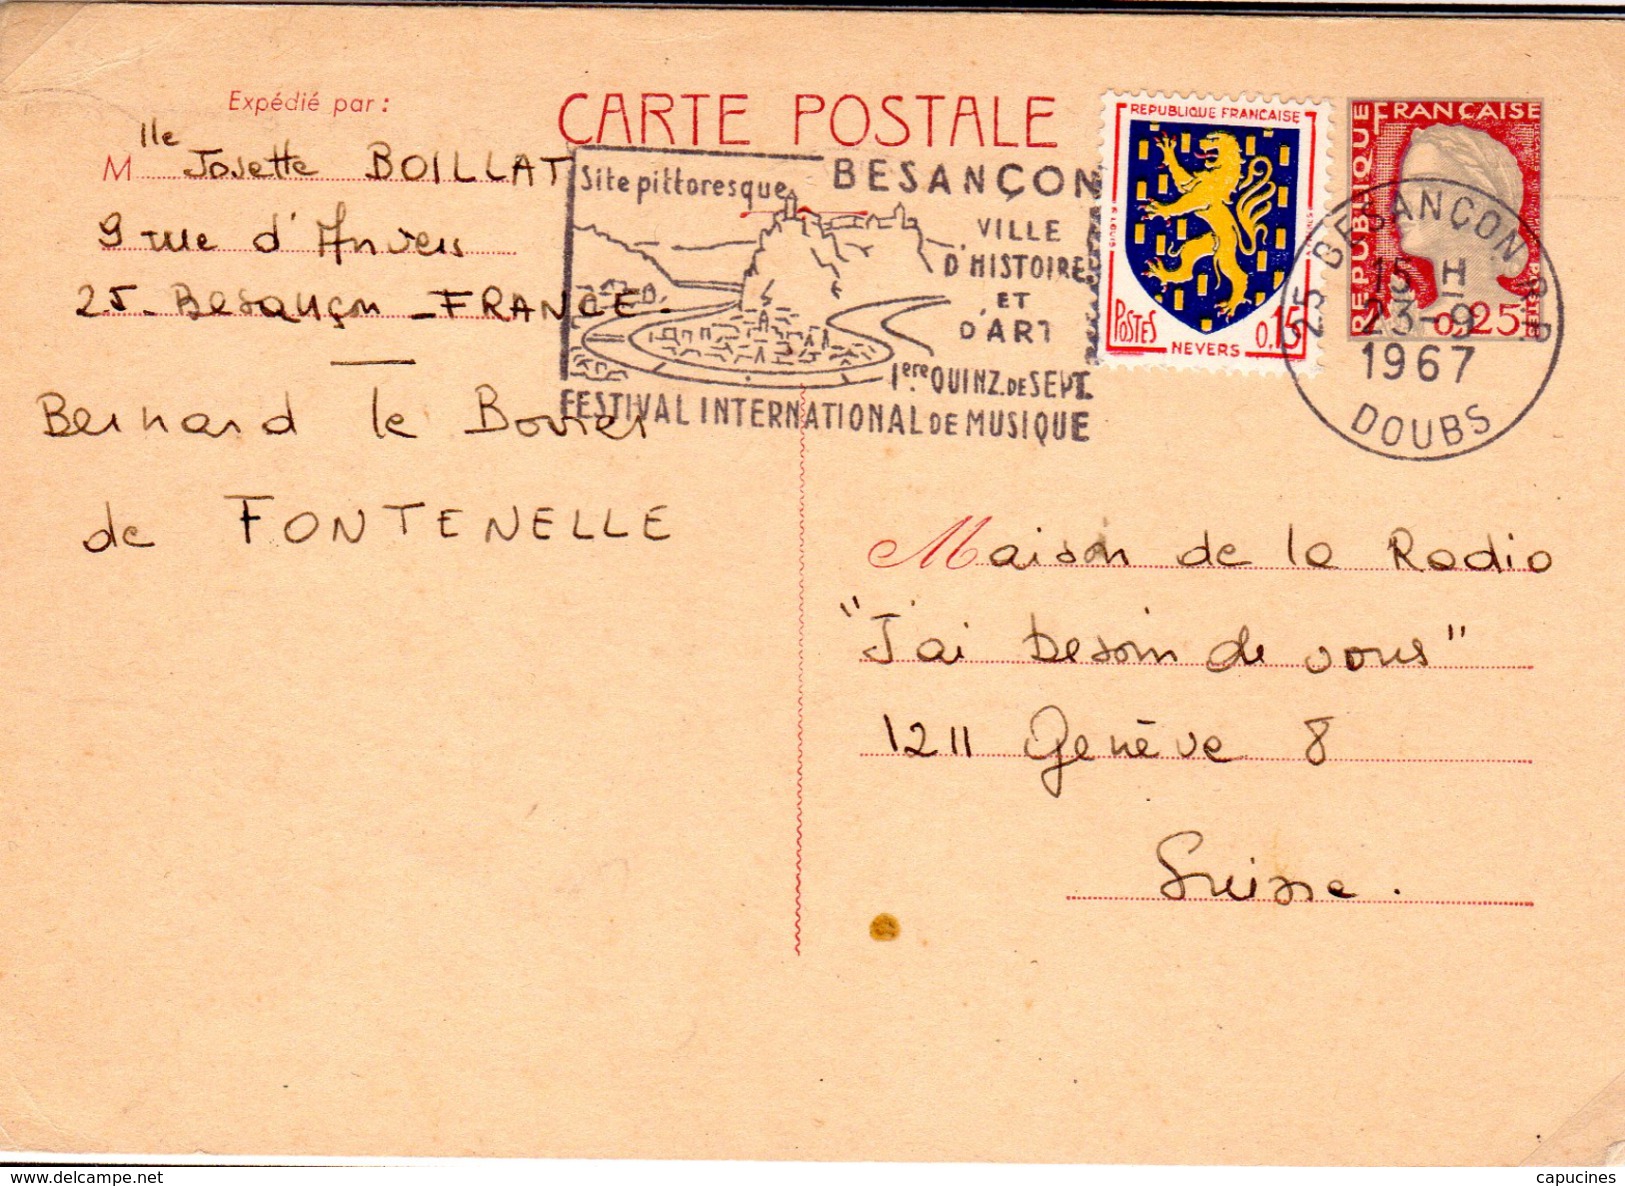 Expédié par :
CARTE POSTALE
Mlle Josette BOILLAT
9 rue d'Anvers
25 - Besançon - FRANCE -
Bernard le Bovier
de FONTENELLE
Site pittoresque
BESANÇON
VILLE
D'HISTOIRE
ET
D'ART
1ère QUINZ. DE SEPT.
FESTIVAL INTERNATIONAL DE MUSIQUE
REPUBLIQUE FRANCAISE
POSTES
0,15
NEVERS
REPUBLIQUE FRANÇAISE
POSTES
0,25
25 BESANÇON R.P.
15 H
23-9
1967
DOUBS
Maison de la Radio
"J'ai besoin de vous"
1211 Genève 8
Suisse.
delcampe.net
capucines